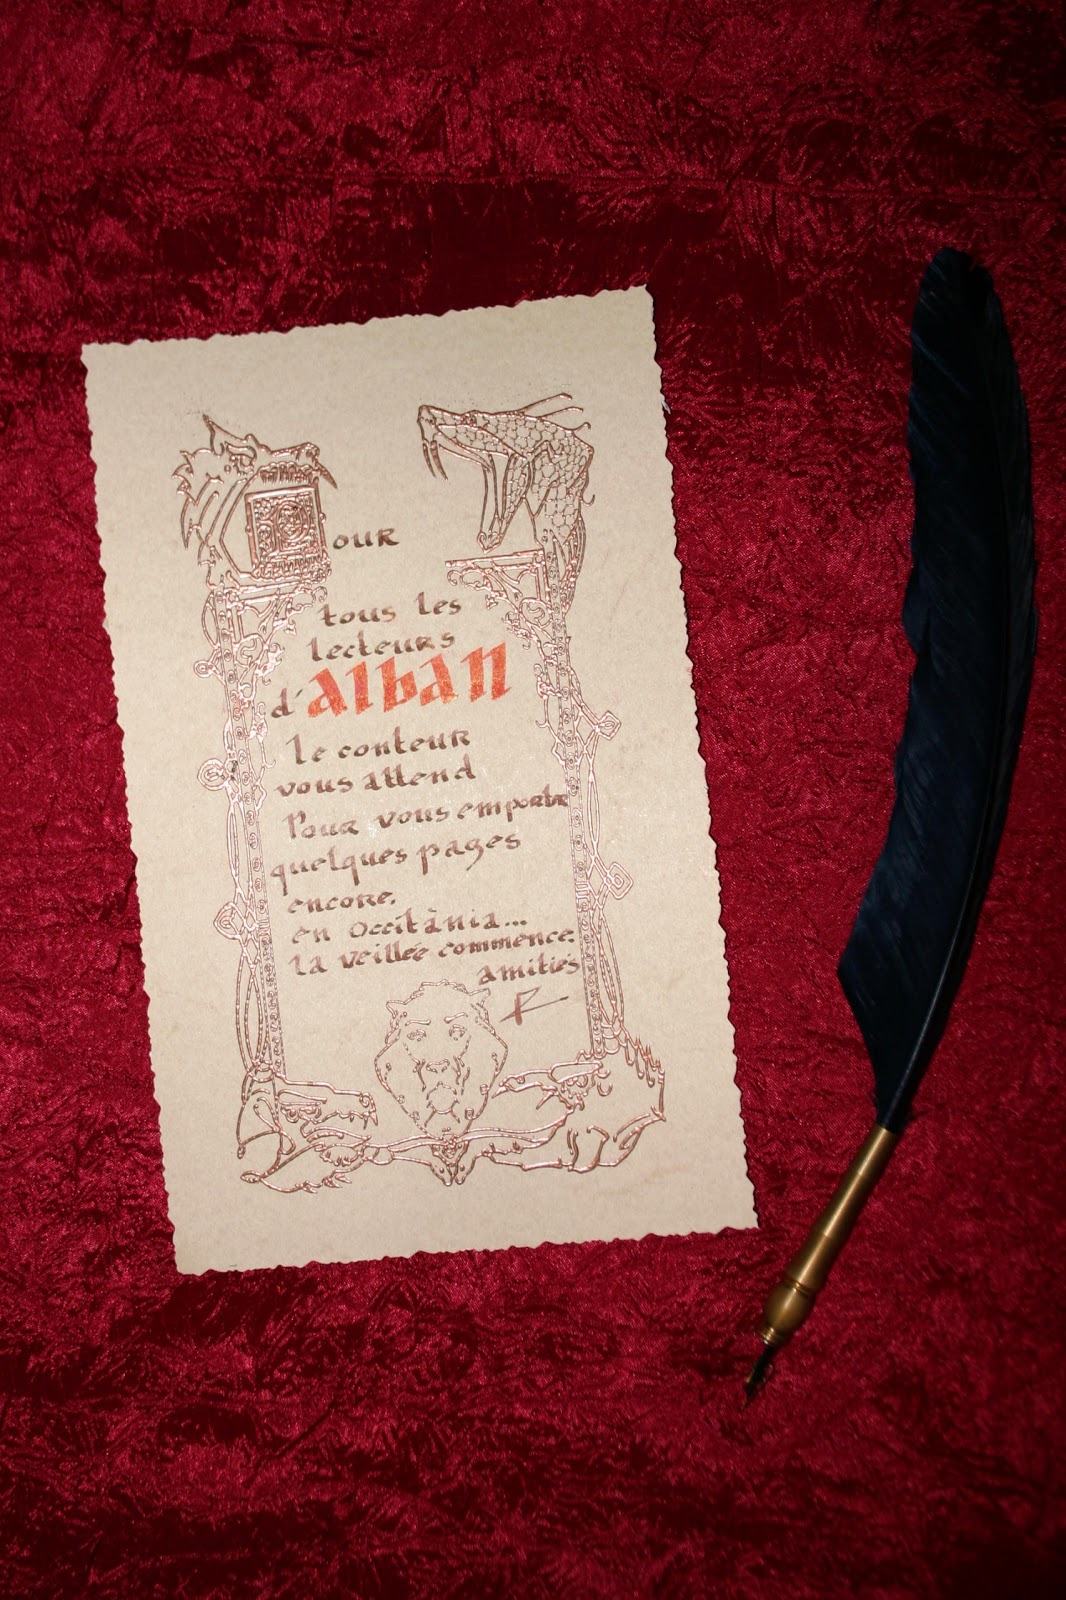 Pour
tous les
lecteurs
d'alban
le conteur
vous attend
Pour vous emporter
quelques pages
encore.
en Occitània...
la veillée commence.
amitiés